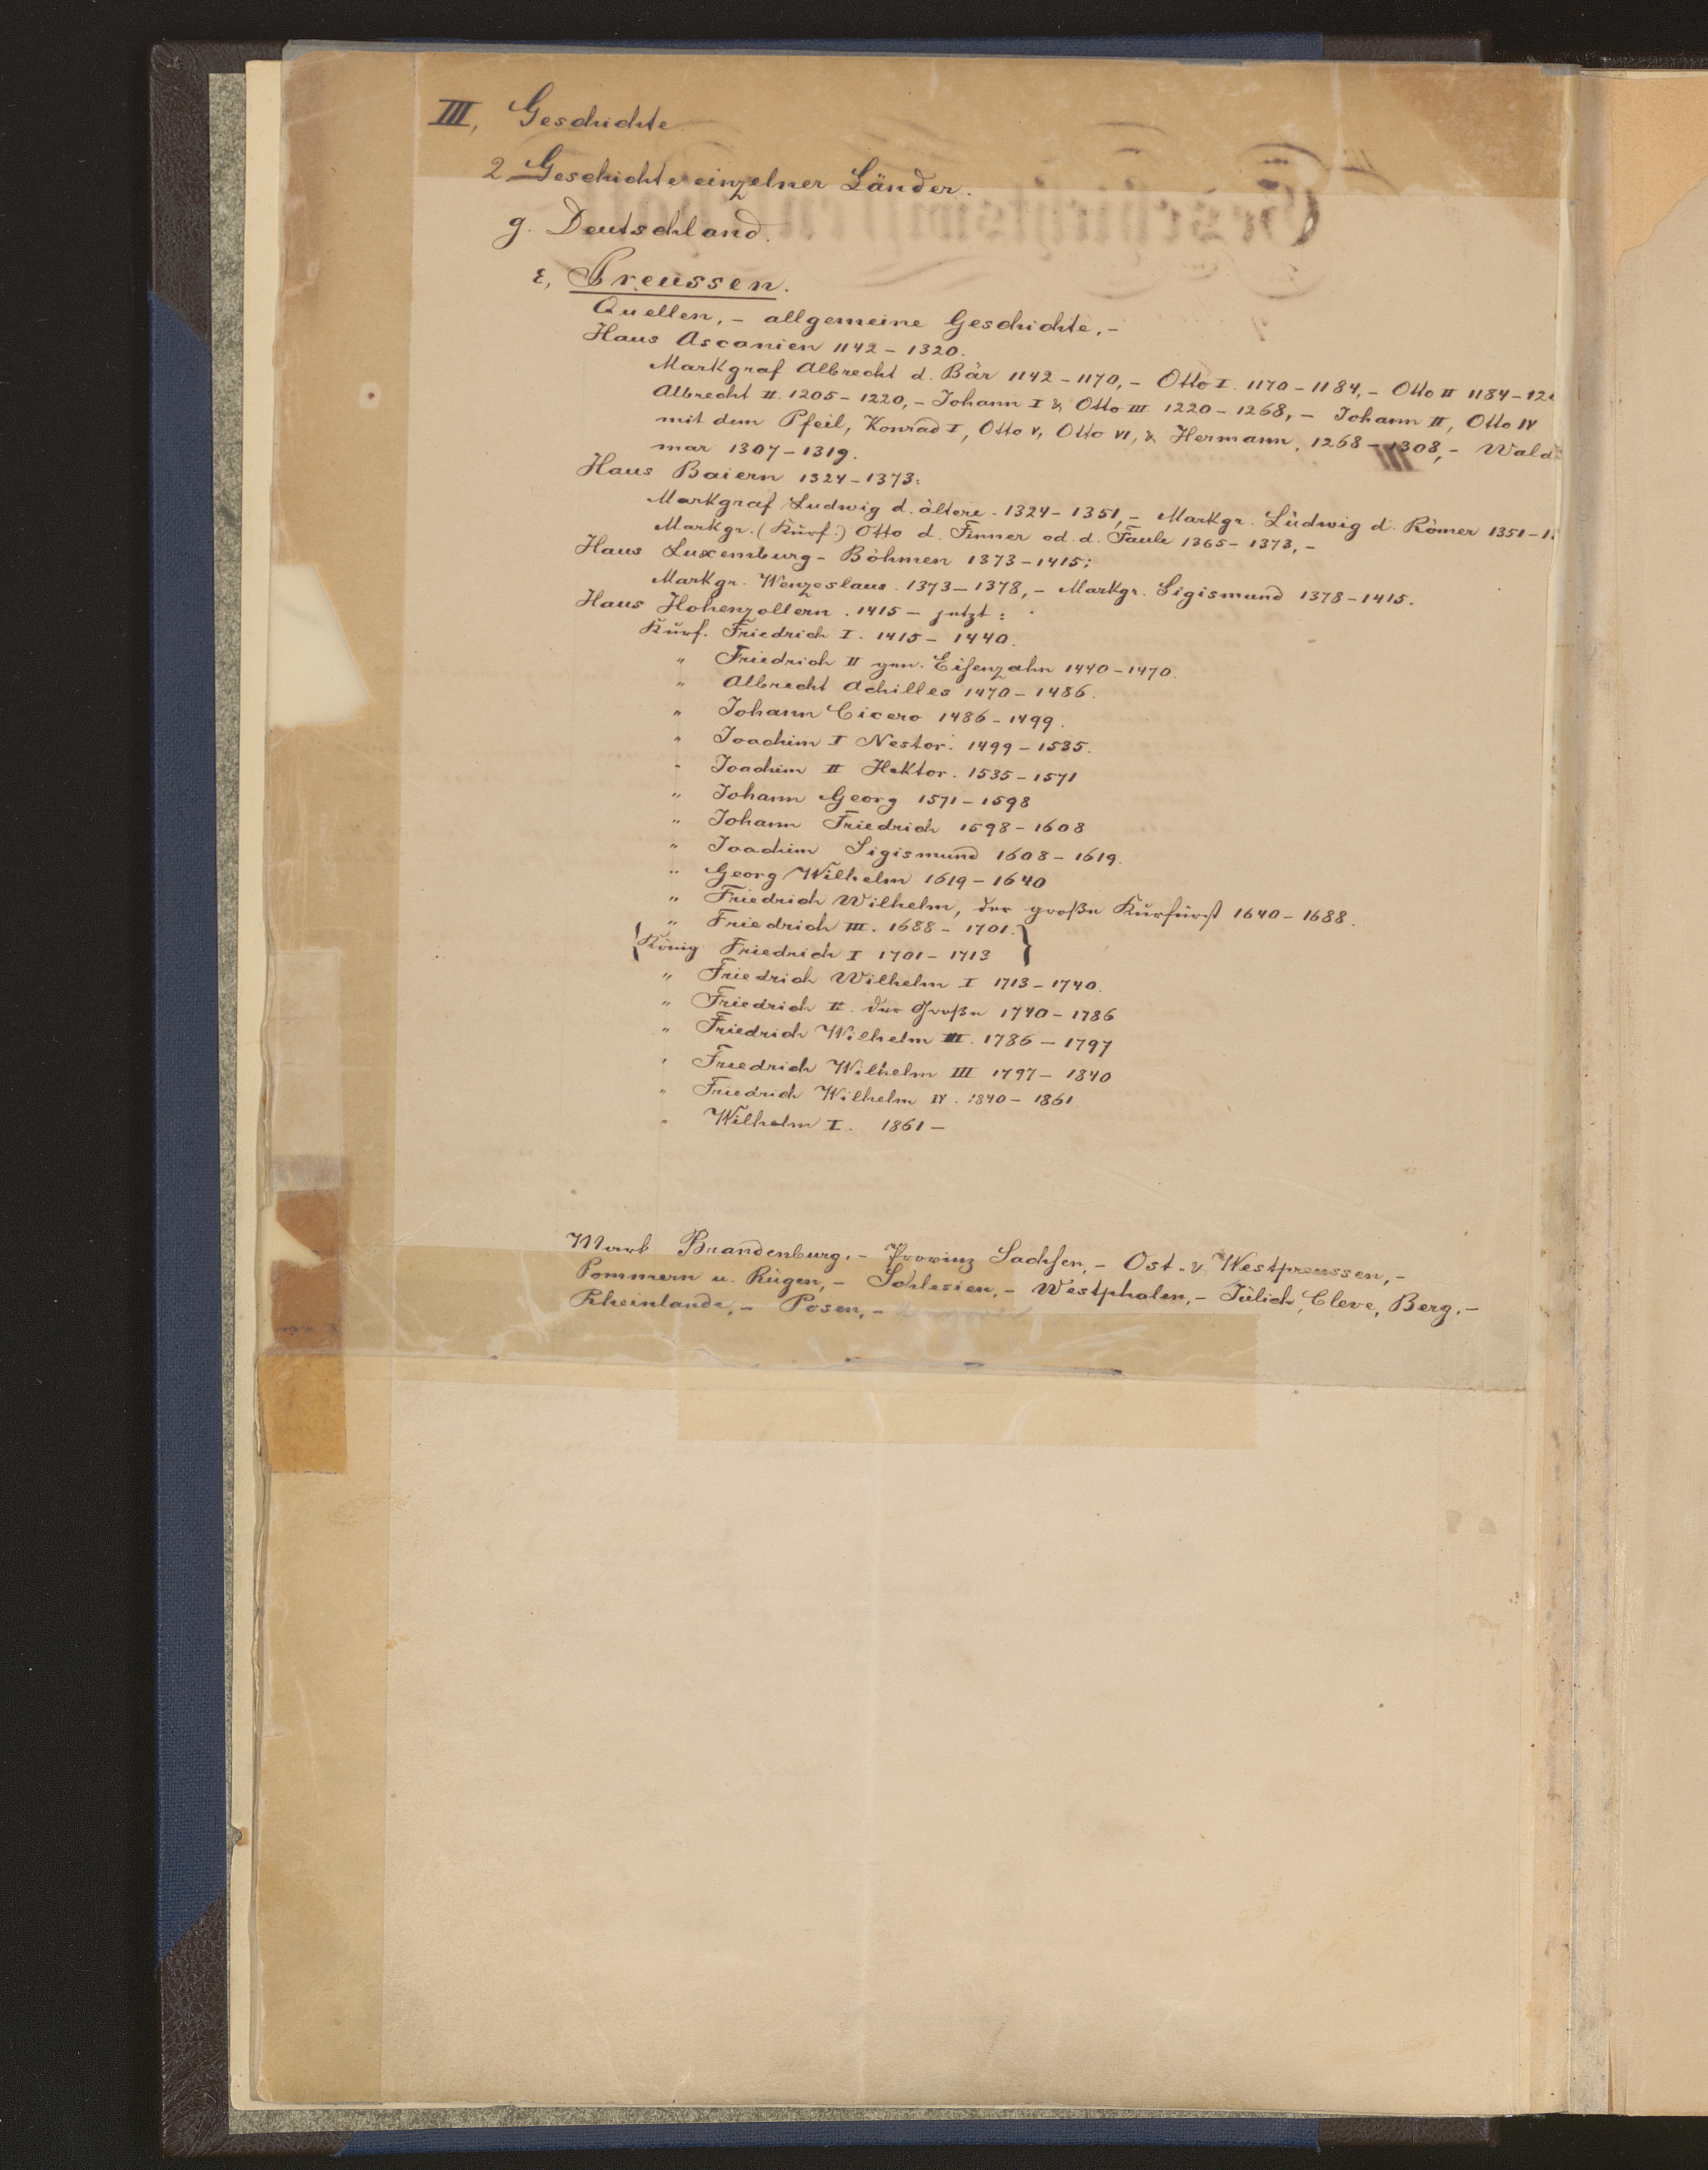 III, Geschichte
2 Geschichte einzelner Länder.
g. Deutschland.
ε, Preussen.
Quellen, – allgemeine Geschichte, –
Haus Ascanien 1142 – 1320.
Markgraf Albrecht d. Bär 1142 – 1170, – Otto I. 1170 – 1184, – Otto II 1184 – 120
Albrecht II. 1205 – 1220, – Johann I & Otto III 1220 – 1268, – Johann II, Otto IV
mit dem Pfeil, Konrad I, Otto V, Otto VI, & Hermann, 1268 – 1308, – Wald
mar 1307 – 1319.
Haus Baiern 1324 – 1373:
Markgraf Ludwig d. ältere. 1324 – 1351, – Markgr. Ludwig d. Römer 1351 – 1
Markgr. (Kurf.) Otto d. Finner od. d. Faule 1365 – 1373, –
Haus Luxemburg – Böhmen 1373 – 1415:
Markgr. Wenzeslaus. 1373 – 1378, – Markgr. Sigismund 1378 – 1415.
Haus Hohenzollern. 1415 – jetzt:
Kurf. Friedrich I. 1415 – 1440.
" Friedrich II gen. Eisenzahn 1440 – 1470.
" Albrecht Achilles 1470 – 1486.
" Johann Cicero 1486 – 1499.
" Joachim I Nestor. 1499 – 1535.
" Joachim II Hektor. 1535 – 1571
" Johann Georg 1571 – 1598
" Johann Friedrich 1598 – 1608
" Joachim Sigismund 1608 – 1619.
" Georg Wilhelm 1619 – 1640
" Friedrich Wilhelm, der große Kurfürst 1640 – 1688.
" Friedrich III. 1688 – 1701.
König Friedrich I 1701 – 1713
" Friedrich Wilhelm I 1713 – 1740.
" Friedrich II. der Große 1740 – 1786
" Friedrich Wilhelm III. 1786 – 1797
" Friedrich Wilhelm III 1797 – 1840
" Friedrich Wilhelm IV. 1840 – 1861
" Wilhelm I. 1861 –
Mark Brandenburg, – Provinz Sachsen, – Ost- & Westpreussen, –
Pommern u. Rügen, – Schlesien, – Westphalen, – Jülich, Cleve, Berg, –
Rheinlande, – Posen, –